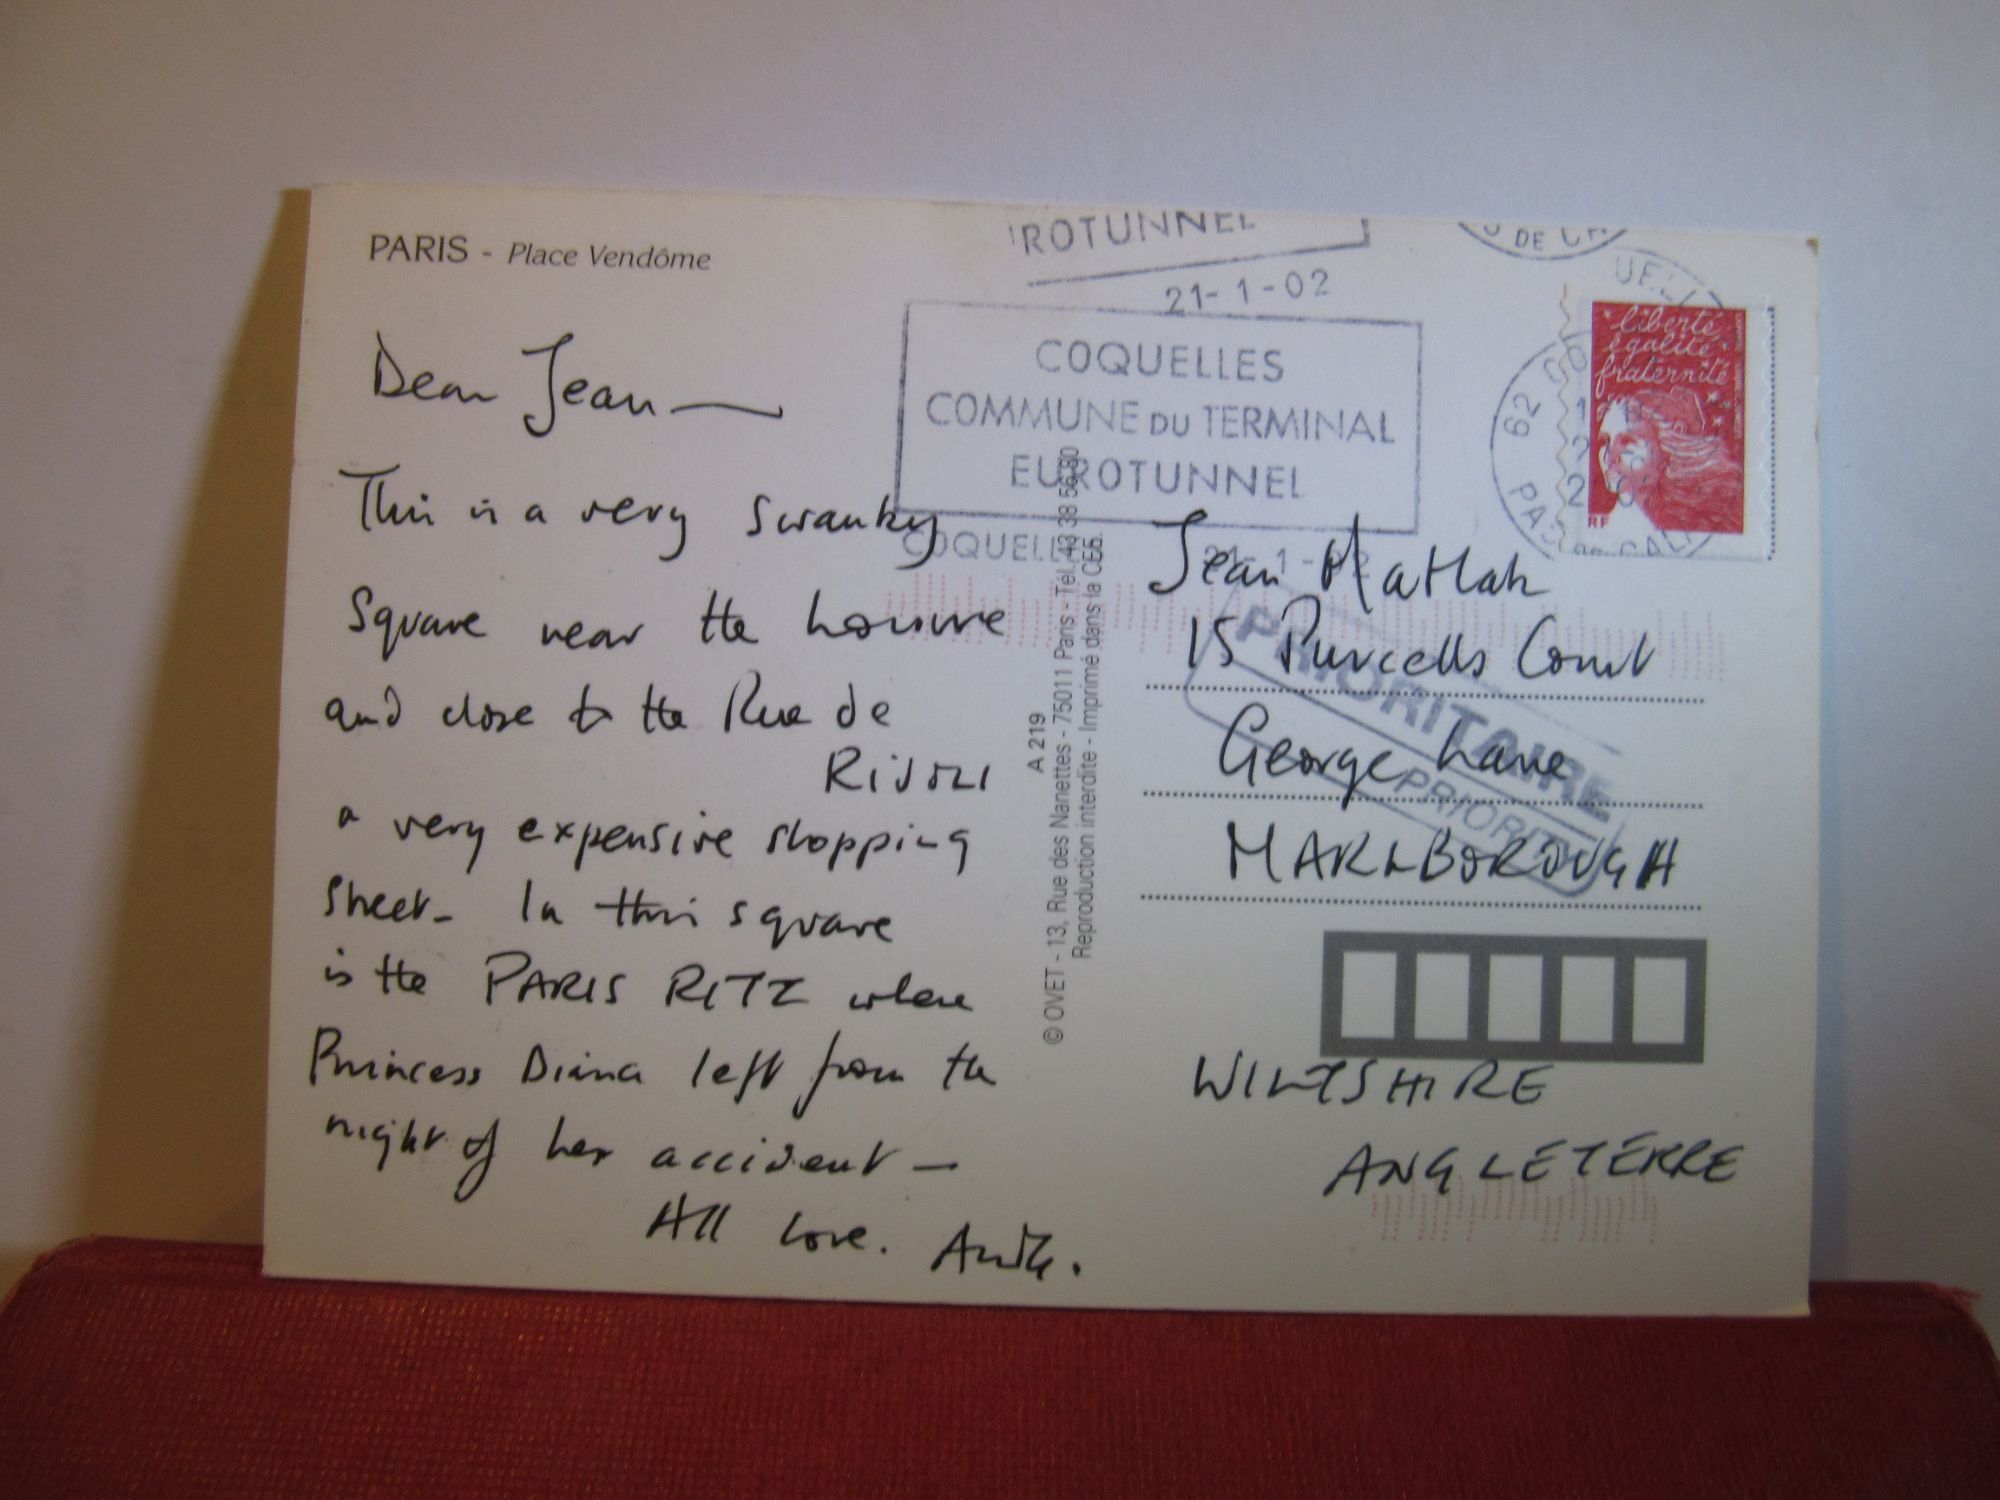 PARIS - Place Vendôme
Dear Jean —
This is a very swanky
square near the Louvre
and close to the Rue de
RIVOLI
a very expensive shopping
street. In this square
is the PARIS RITZ where
Princess Diana left from the
night of her accident —
All love.
ROTUNNEL
21-1-02
COQUELLES
COMMUNE DU TERMINAL
EUROTUNNEL
COQUELLES 21-1-02
62
PAS DE CALAIS
liberté
égalité
fraternité
RF
A 219
© OVET - 13, Rue des Nanettes - 75011 Paris - Tél. 43 38 56 80
Reproduction interdite - Imprimé dans la CEE.
PRIORITAIRE
PRIORITY
Jean
15 Purcells Court
George Lane
MARLBOROUGH
WILTSHIRE
ANGLETERRE